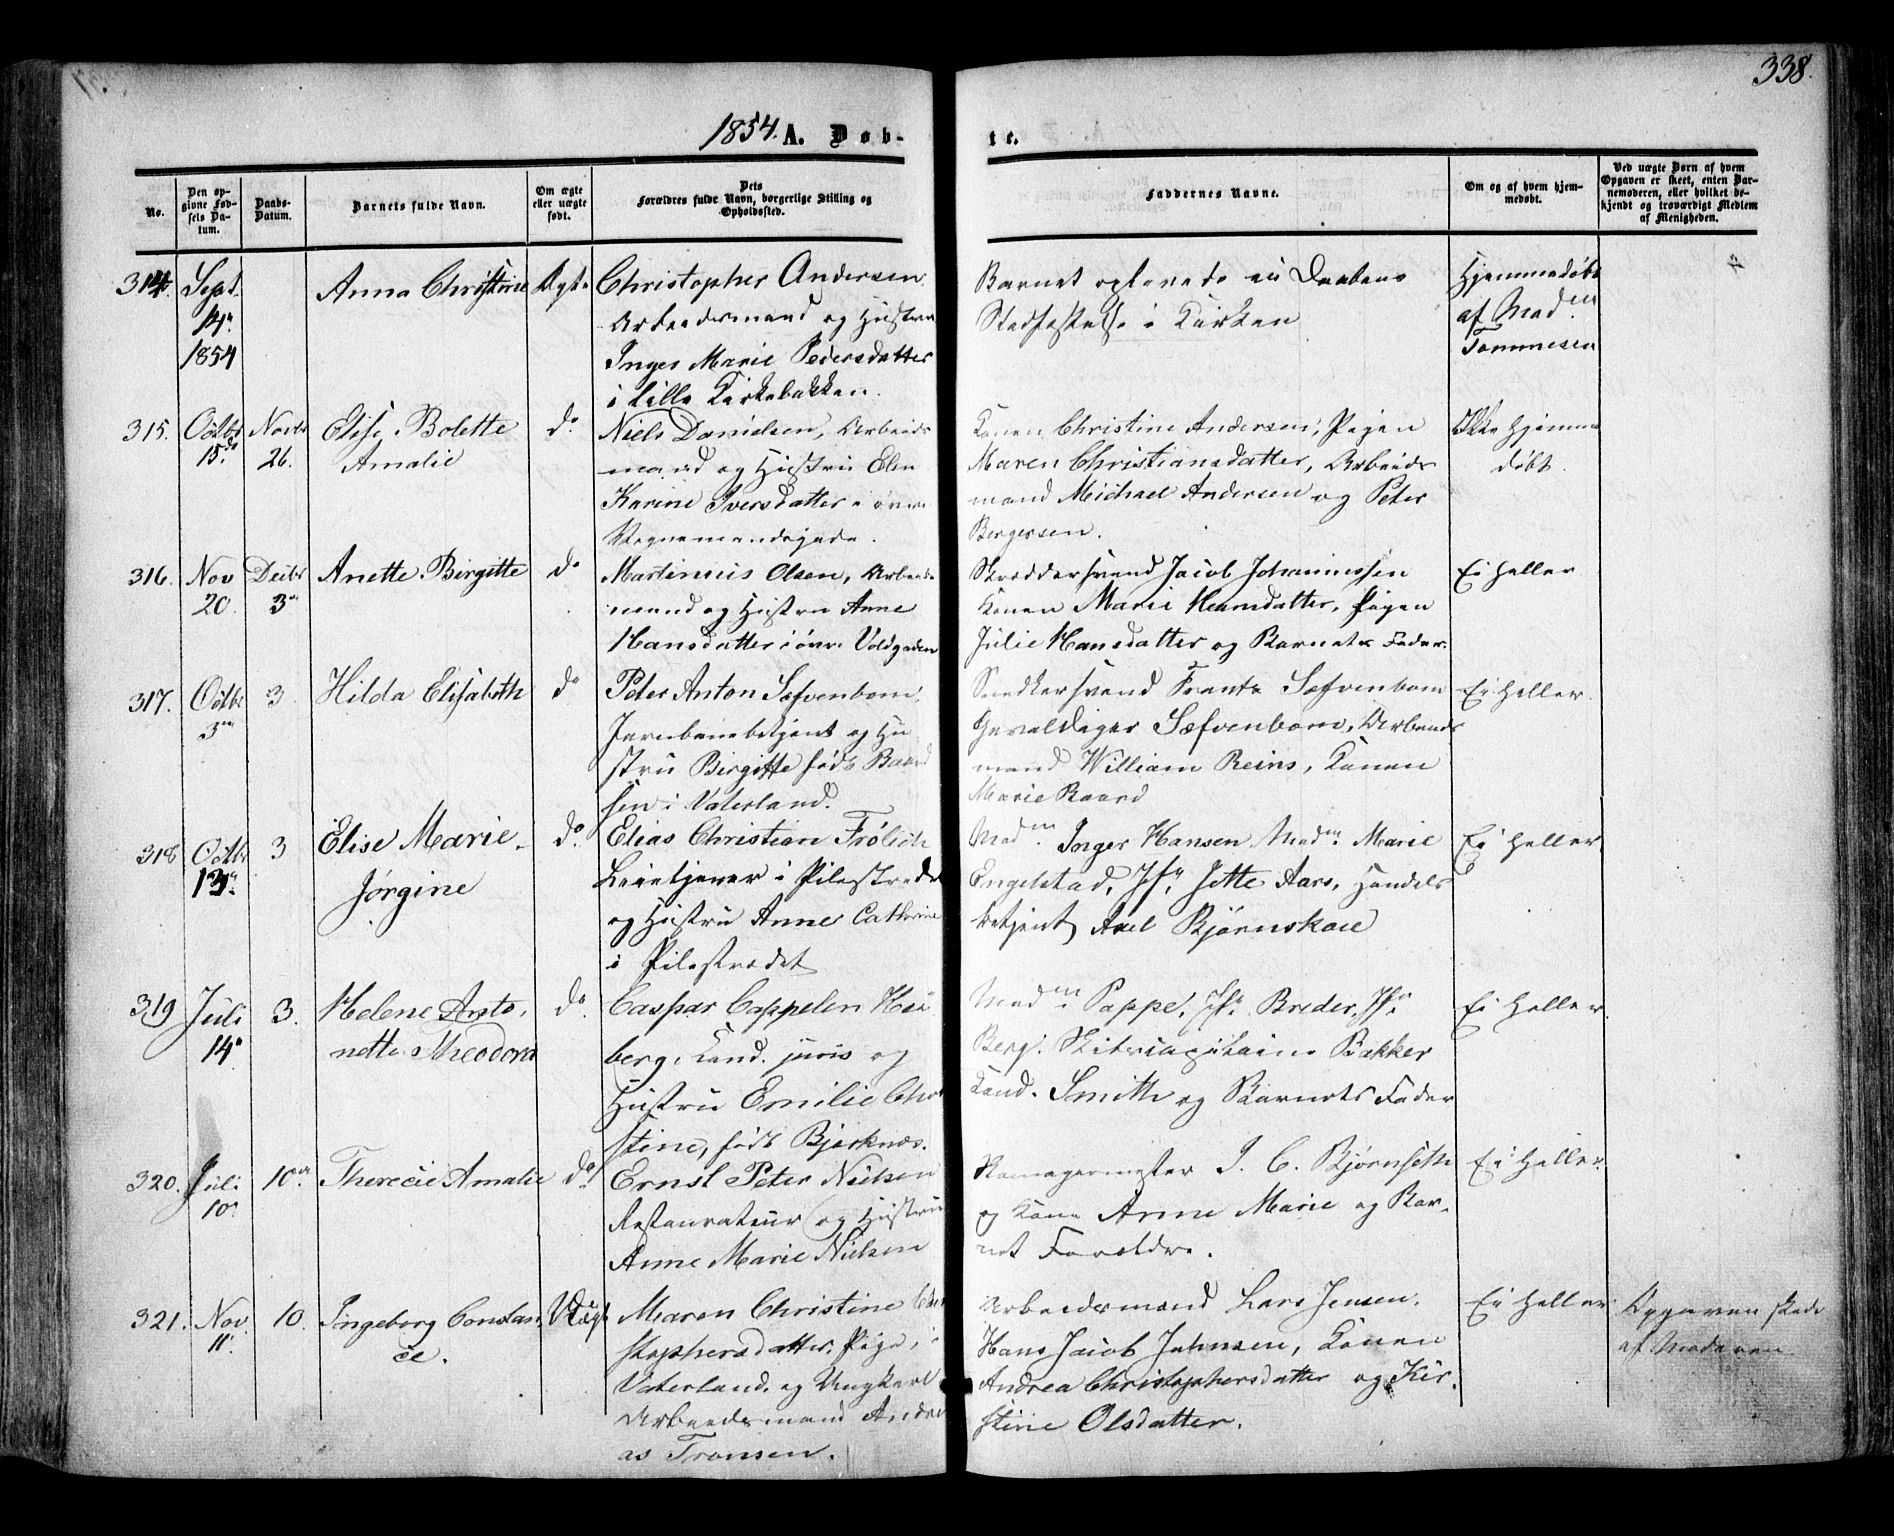 338.
1854. A. Døb-
te.
No.
Den op-
givne Fød-
sels Da-
tum.
Daabs-
Datum.
Barnets fulde Navn.
Om ægte
eller uægte
født.
Dets
Forældres fulde Navn, borgerlige Stilling og
Opholdssted.
Faddernes Navne.
Om og af hvem hjem-
medøbt.
Ved uægte Børn af hvem
Opgaven er skeet, enten Bar-
nemoderen, eller hvilket be-
kjendt og troværdigt Medlem
af Menigheden.
314.
Sept.
14de
1854
Anna Christine
Ægte
Christopher Andersen
Arbeidsmand og Hustru
Inger Marie Pedersdatter
i Lille Kirkebakken.
Barnet oplevede ei Daabens
Stadfæstelse i Kirken
Hjemmedøbt
af Madm
Tommesen
315.
Octbr
15de
Novbr
26.
Elise Bolette
Amalie
do
Niels Danielsen, Arbeids
mand og Hustru Elen
Karine Iversdatter i øvre
Vognmandsgade.
Konen Christine Andersen, Pigen
Maren Christiansdatter, Arbeids
mand Michael Andersen og Peter
Bergersen.
Ikke Hjemme
døbt.
316.
Nov
20.
Decbr
3de
Anette Birgitte
do
Martinius Olsen, Arbeids
mand og Hustru Anne
Hansdatter i øvre Voldgaden
Skreddersvend Jacob Johannessen
Konen Marie Hansdatter, Pigen
Julie Hansdatter og Barnets Fader.
Ei heller
317.
Octbr
3de
3
Hilda Elisabeth
do
Peter Anton Sæfvenbom,
Jernbanebetjent og Hu
stru Birgitte født Baard
sen i Vaterland.
Snedkersvend Frants Sæfvenbom
Gevaldiger Sæfvenbom, Arbeids
mand William Reins, Konen
Marie Baard
Ei heller.
318
Octbr
13de
3
Elise Marie
Jørgine
do
Elias Christian Frølich
Leietjener i Pilestrædet
og Hustru Anne Cathrine
i Pilestrædet
Madm Inger Hansen Madm Marie
Engelstad, Jfr Jette Aars, Handels
betjent Axel Bjørnskau
Ei heller
319
Juli
14de
3.
Helene Anto-
nette Theodora
do
Caspar Cappelen Hei
berg, Kand. juris og
Hustru Emilie Chri
stine, født Bjerknæs.
Madm Pappe, Jfr Breder, Jfr
Berg, Skibscapitaine Bakker
Kand. Smith og Barnets Fader
Ei heller
320.
Juli
10de
10de
Therecie Amalie
do
Ernst Peter Nielsen
Restaurateur og Hustru
Anne Marie Nielsen
I. C. Bjørnseth
og Kone Anne Marie og Bar-
net Forældre.
Ei heller
321.
Nov.
11.
10.
Ingeborg Constan-
ce.
Uægte
Maren Christine Chri
stophersdatter, Pige, i
Vaterland, og Ungkarl
Arbeidsmand Andre
as Tronsen.
Arbeidsmand Lars Jensen,
Hans Jacob Johnsen, Konen
Andrea Christophersdatter og Kir-
stine Olsdatter.
Ei heller
Opgaven skede
af Moderen.